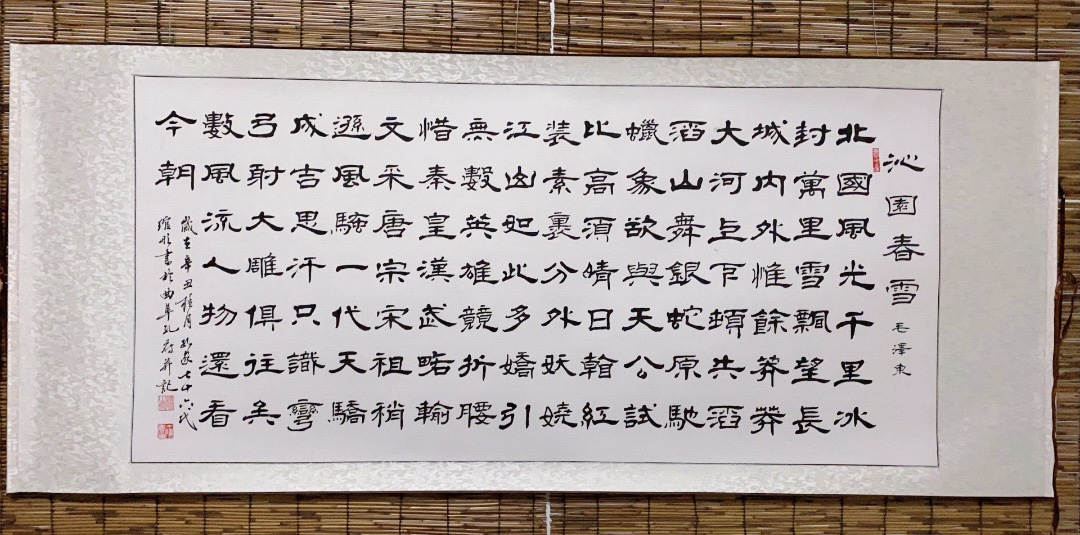 沁園春雪 毛澤東
北國風光千里冰
封萬里雪飄望長
城内外惟餘莽莽
大河上下頓失滔
滔山舞銀蛇原馳
蠟象欲與天公試
比高須晴日看紅
裝素裹分外妖嬈
江山如此多嬌引
無數英雄競折腰
惜秦皇漢武略輸
文采唐宗宋祖稍
遜風騷一代天驕
成吉思汗只識彎
弓射大雕俱往矣
數風流人物還看
今朝
歲在辛丑桂月孔家七十六代
書於曲阜孔府并記